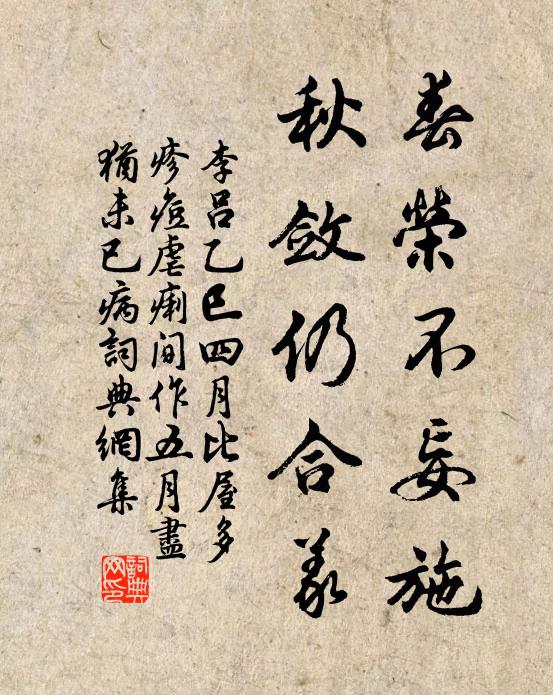 春榮不妄施
秋斂仍合義
李呂乙巳四月比屋多
疹痘虐痢間作五月盡
猶未已病詞典網集
詞典网印